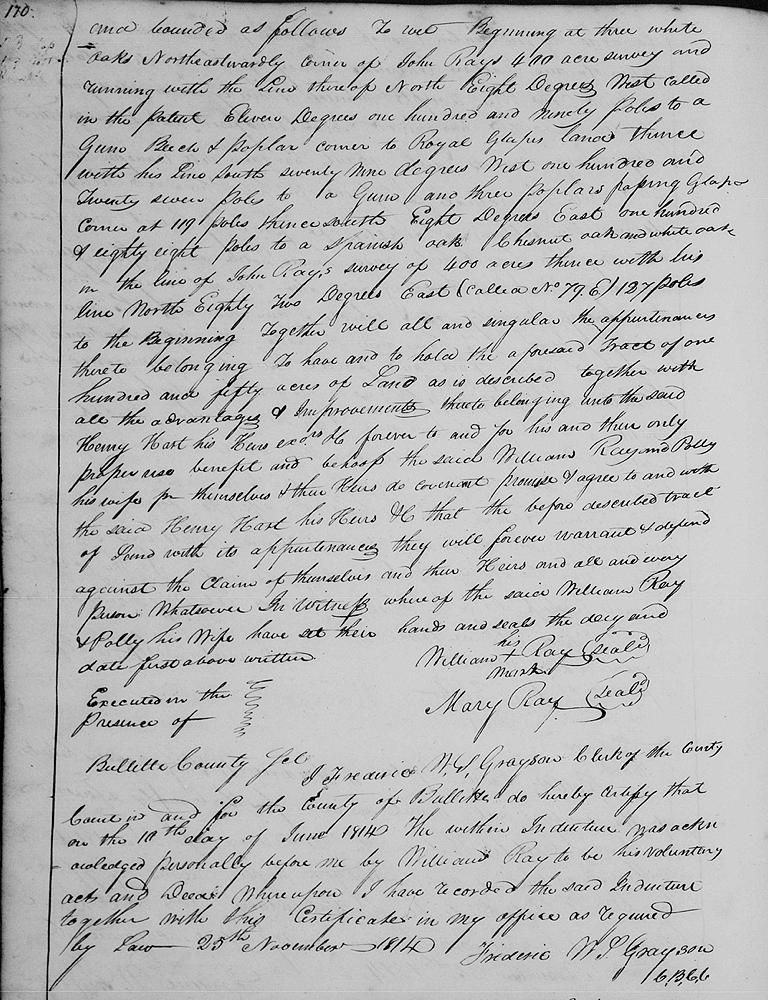 170.
and bounded as follows To wit Beginning at three white
oaks Northeastwardly corner of John Rays 400 acre survey and
running with the Line thereof North Eight Degrees West called
in the patent Eleven Degrees one hundred and ninety poles to a
Gum Beech & poplar corner to Royal Glapss land thence
with his Line South seventy nine degrees West one hundred and
Twenty seven Poles to a Gum and three poplars passing Glaps
Corner at 119 poles thence south Eight Degrees East one hundred
& eighty eight poles to a Spanish oak Chesnut oak and white oak
in the line of John Ray,s survey of 400 acres thence with his
line North Eighty Two Degrees East (called No. 79. E) 127 poles
to the Beginning Together will all and singular the appurtenances
thereto belonging To have and to hold the aforesaid Tract of one
hundred and fifty acres of Land as is described together with
all the advantages & Improvements thereto belonging unto the said
Henry Hart his Heirs exors &c forever to and for his and their only
proper use benefit and behoof the said William Ray and Polly
his wife for themselves & their Heirs do covenant promise & agree to and with
the said Henry Hart his Heirs &c that the before described tract
of Land with its appurtenances they will forever warrant & defend
against the Claim of themselves and their Heirs and all and every
person Whatsoever In Witness whereof the said William Ray
& Polly his Wife have set their hands and seals the day and
date first above written
his
William + Ray (Seal)
mark
Executed in the
Mary Ray (Seal)
Presence of
Bullitt County Sct
I Frederic W, S, Grayson Clerk of the County
Court in and for the County of Bullitt do hereby certify that
on the 10th day of June 1814 The within Indenture was ackn
owledged personally before me by William Ray to be his voluntary
acts and Deed Whereupon I have recorded the said Indenture
together with this Certificate in my office as required
by Law 25th November 1814
Frederic W. S. Grayson
C,B,C,C